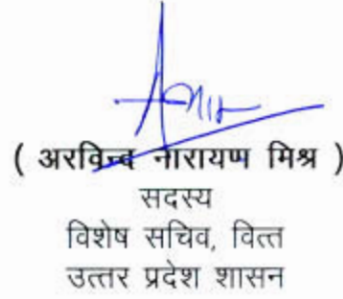 ( अरविन्द नारायण मिश्र )
सदस्य
विशेष सचिव, वित्त
उत्तर प्रदेश शासन